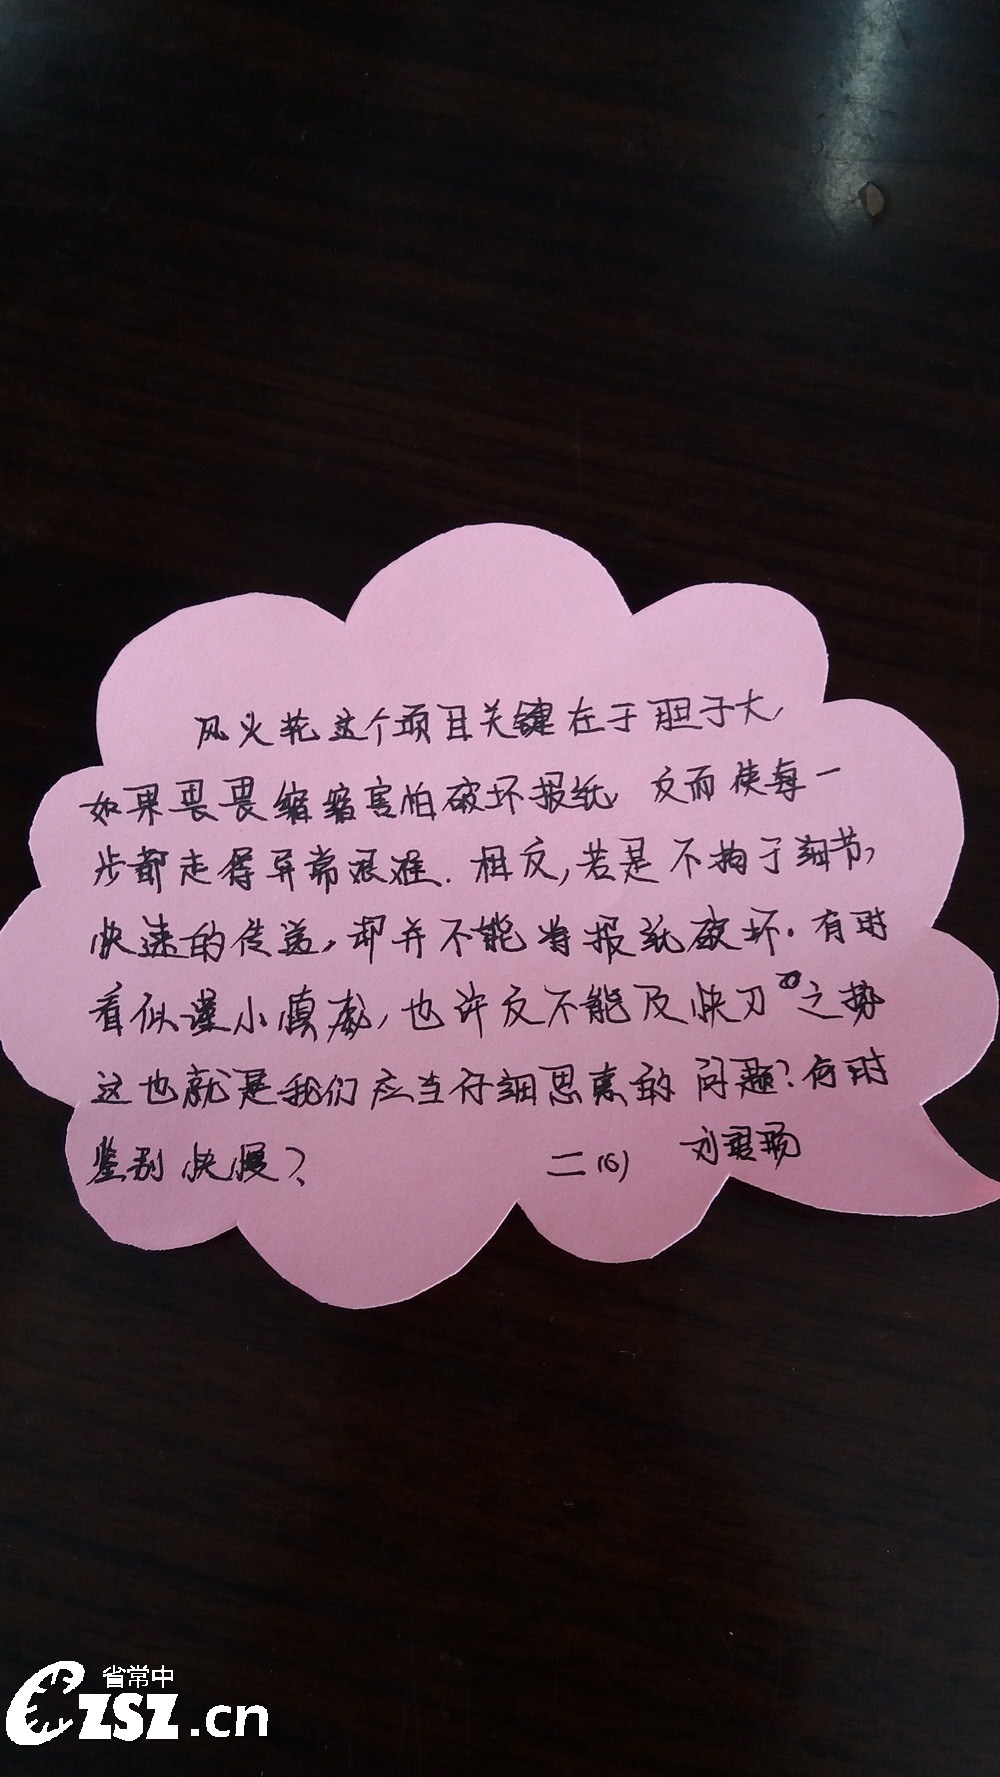 风火轮这个项目关键在于胆子大，
如果畏畏缩缩害怕破坏报纸，反而使每一
步都走得异常艰难．相反，若是不拘于细节，
快速的传递，却并不能将报纸破坏．有时
看似谨小慎微，也许反不能及快刀之势
这也就是我们应当仔细思索的问题？何时
鉴别快慢？
二（6） 刘君
省常中
CZSZ.cn